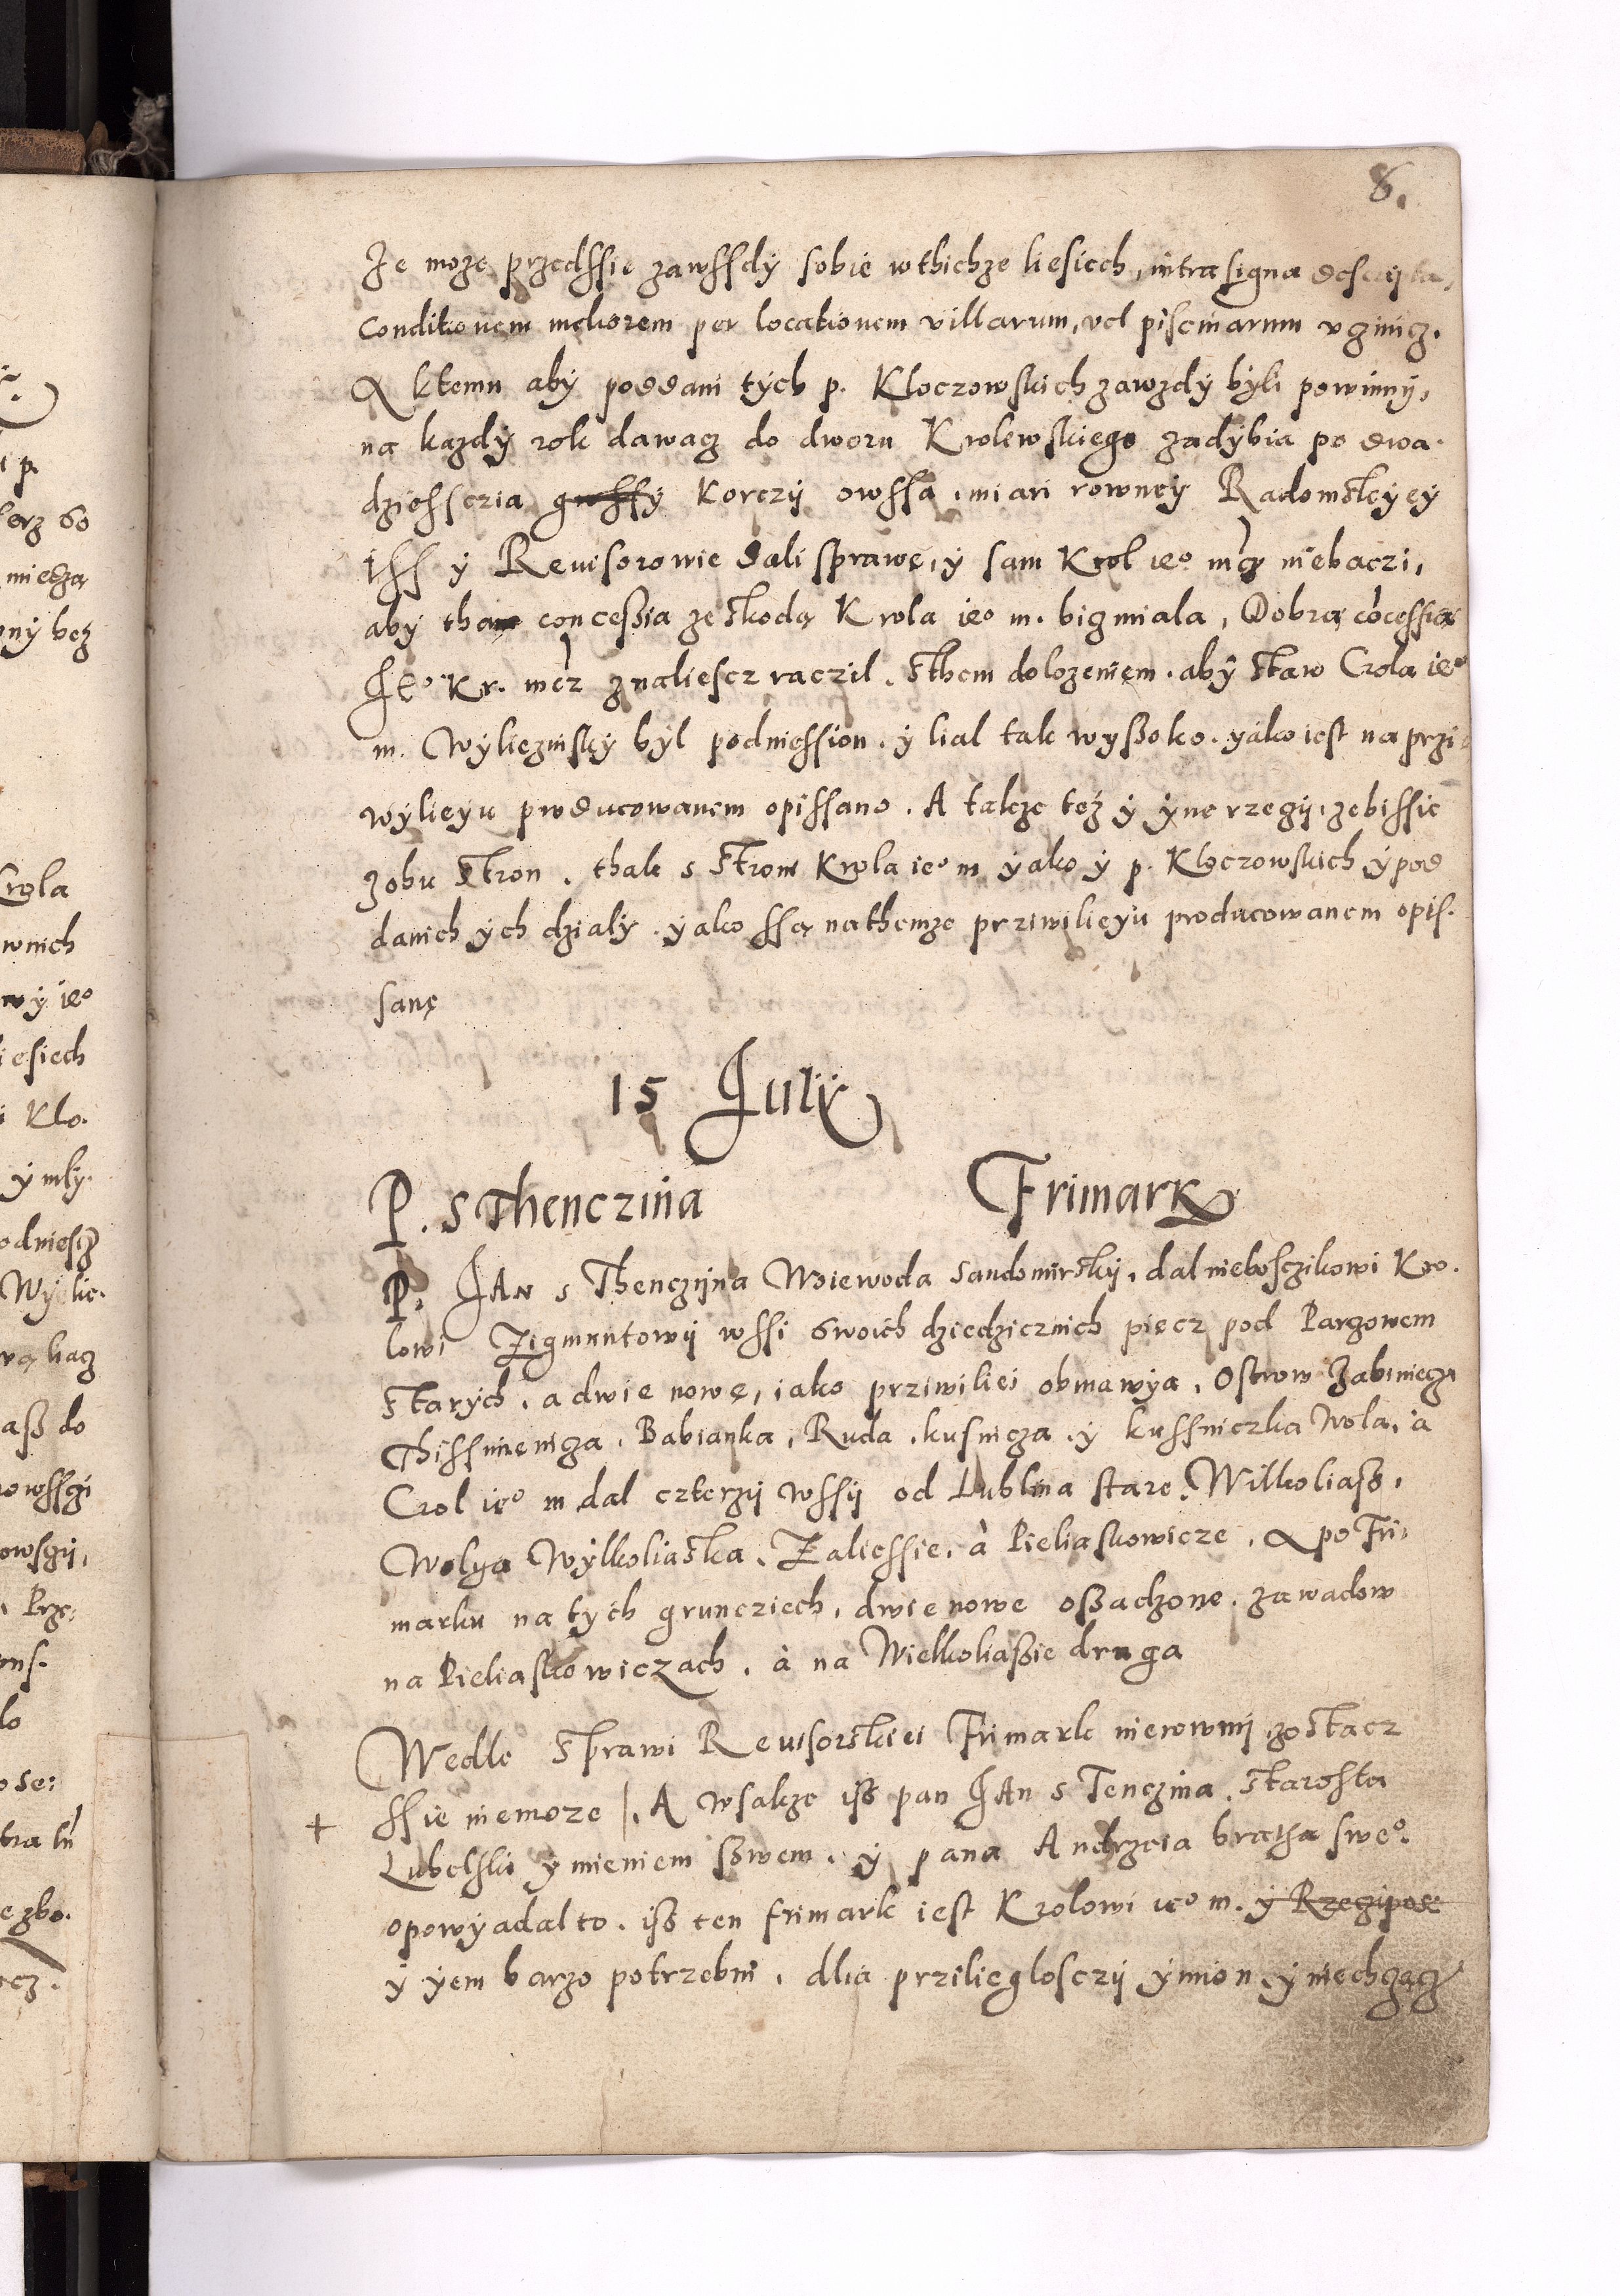 8.
Je moze przedssie zawssdÿ sobie wthichze liesiech, intra signa descripta,
Conditionem meliorem per locationem villarum, vel piscinarum vginicz.
A ktemu abÿ poddani tÿch p. Kloczowskich zawzdÿ bÿli powinnÿ,
na kazdÿ rok dawacz do dworu Krolewskiego zadÿbia po dwa.
dziessczia gussÿ Korczÿ owssa, miari rownej Radomskÿeÿ
Iss ÿ Reuisorowie dali sprawę, ÿ sam Krol ieo mcz niebaczi,
abÿ tha concessia ze skodą Krola ieo m. bicz miala, Dobrą cōcessią
Jeo Kr. mcz znaliescz raczil. Sthem dolozeniem. abÿ staw Crola ieo
m. Wÿliezniskÿ bÿl podniession. ÿ lial tak wysoko. ÿako iest na przi
wÿlieÿu producowanem opissano. A takze też ÿ ÿne rzeczÿ, zebissie
zobu stron. thak s strony Krola ieo m ÿako ÿ p. Kloczowskich ÿ pod
danich ÿch dzialÿ. ÿako ssą nathemze prziwilieÿu producowanem opis.
sanę
15 Julÿ
P. s Thenczina Frimark
P. JAN s Thenczÿna Woiewoda Sandomirskÿ, dal nieboszczikowi Kro.
lowi Zigmuntowÿ wssi swoich dziedzicznich piecz pod Parzowem
starÿch. a dwie nowę, iako prziwiliei obmawÿa. Ostrow Zabiniecza
Thissmienicza. Babianka, Ruda. kusnicza. ÿ kussniczka Wola, à
Crol ieo m dal czterzÿ wssÿ od Lublina stare. Wilkoliass.
Wolya Wÿlkoliaska. Zaliessie. à Pieliaskowicze. A po Fri
marku na tÿch grunciech. dwie nowe ossadzone. zawadow
na Pieliaskowiczach. à na Wielkoliassie druga
Wedle sprawi Reuisorskiei Frimark nierownÿ zostacz
+ ssie niemoze |. A wsakze iss pan JAn s Tenczina. starosta
Lubelski ÿmieniem sswem. ÿ pana Andrzeia bratha sweo.
opowÿadal to. iss ten frimark iest Krolowi ieo m. ÿ Rzeczipos:
ÿ ÿem barzo potrzebni. dlia przilieglosczÿ ÿmion. ÿ niechcącz